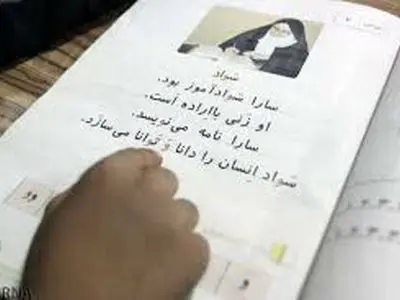 سواد
سارا سوادآموز بود.
او زنی بااراده است.
سارا نامه می‌نویسد.
سواد انسان را دانا و توانا می‌سازد.
و
و
RNA